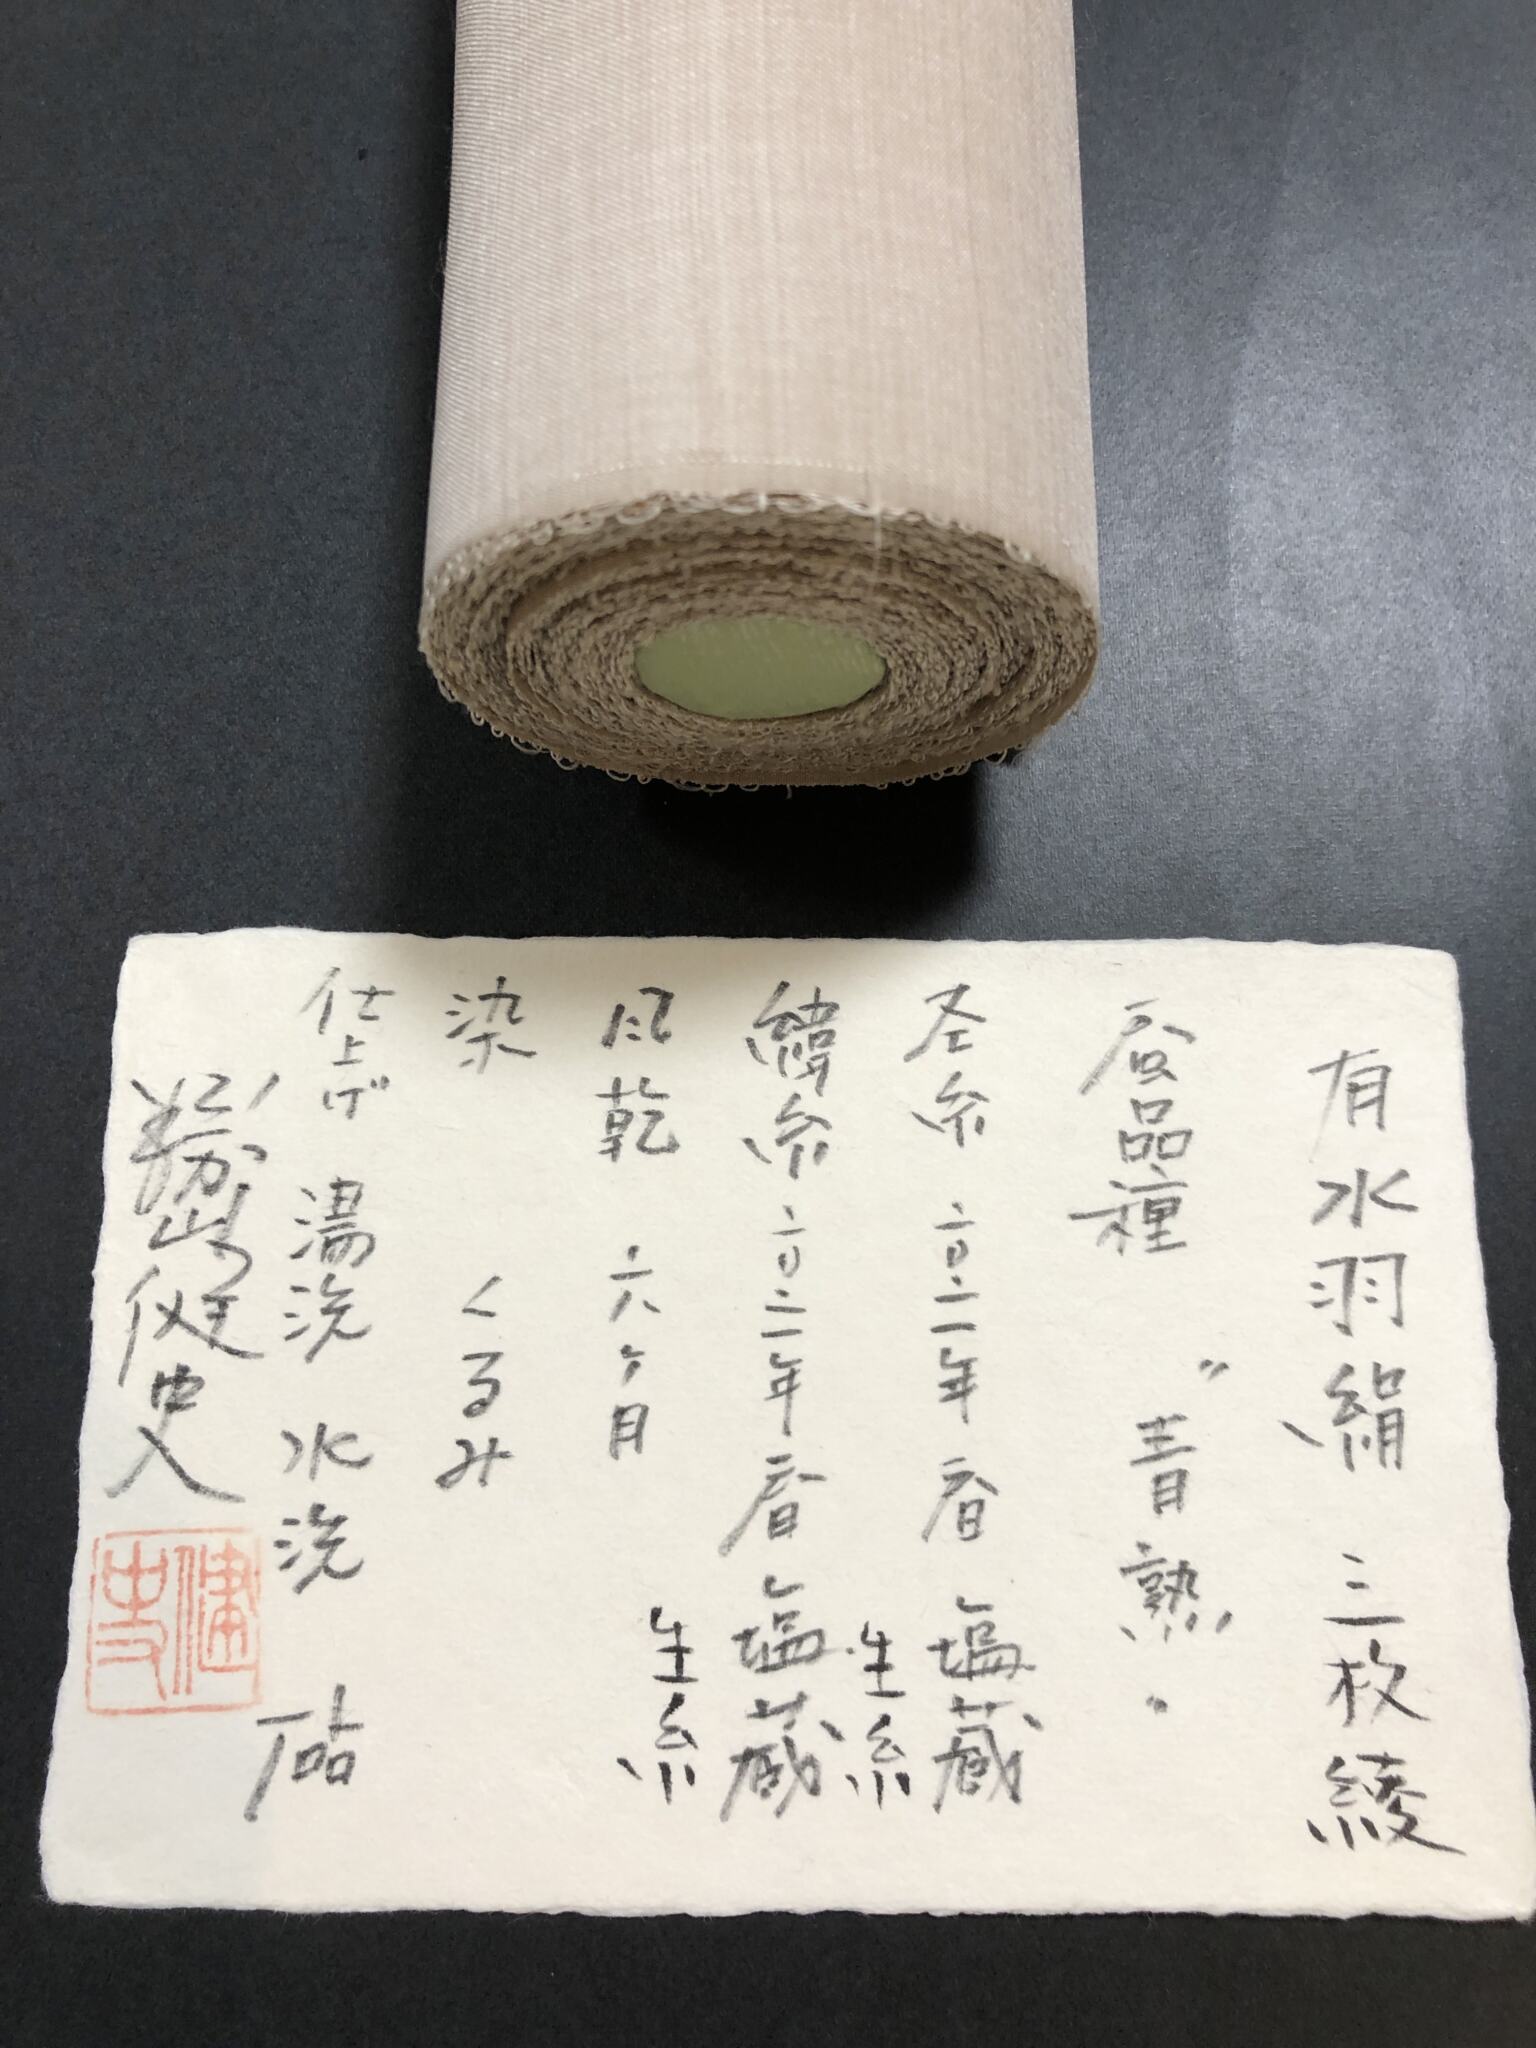 有水羽絹 三枚綾
蚕品種 "青熟"
圣糸 二〇二一年 春 塩蔵 生糸
緯糸 二〇二一年 春 塩蔵 生糸
風乾 六ヶ月
染 くるみ
仕上げ 湯洗 水洗 砧
勝山健史
健史